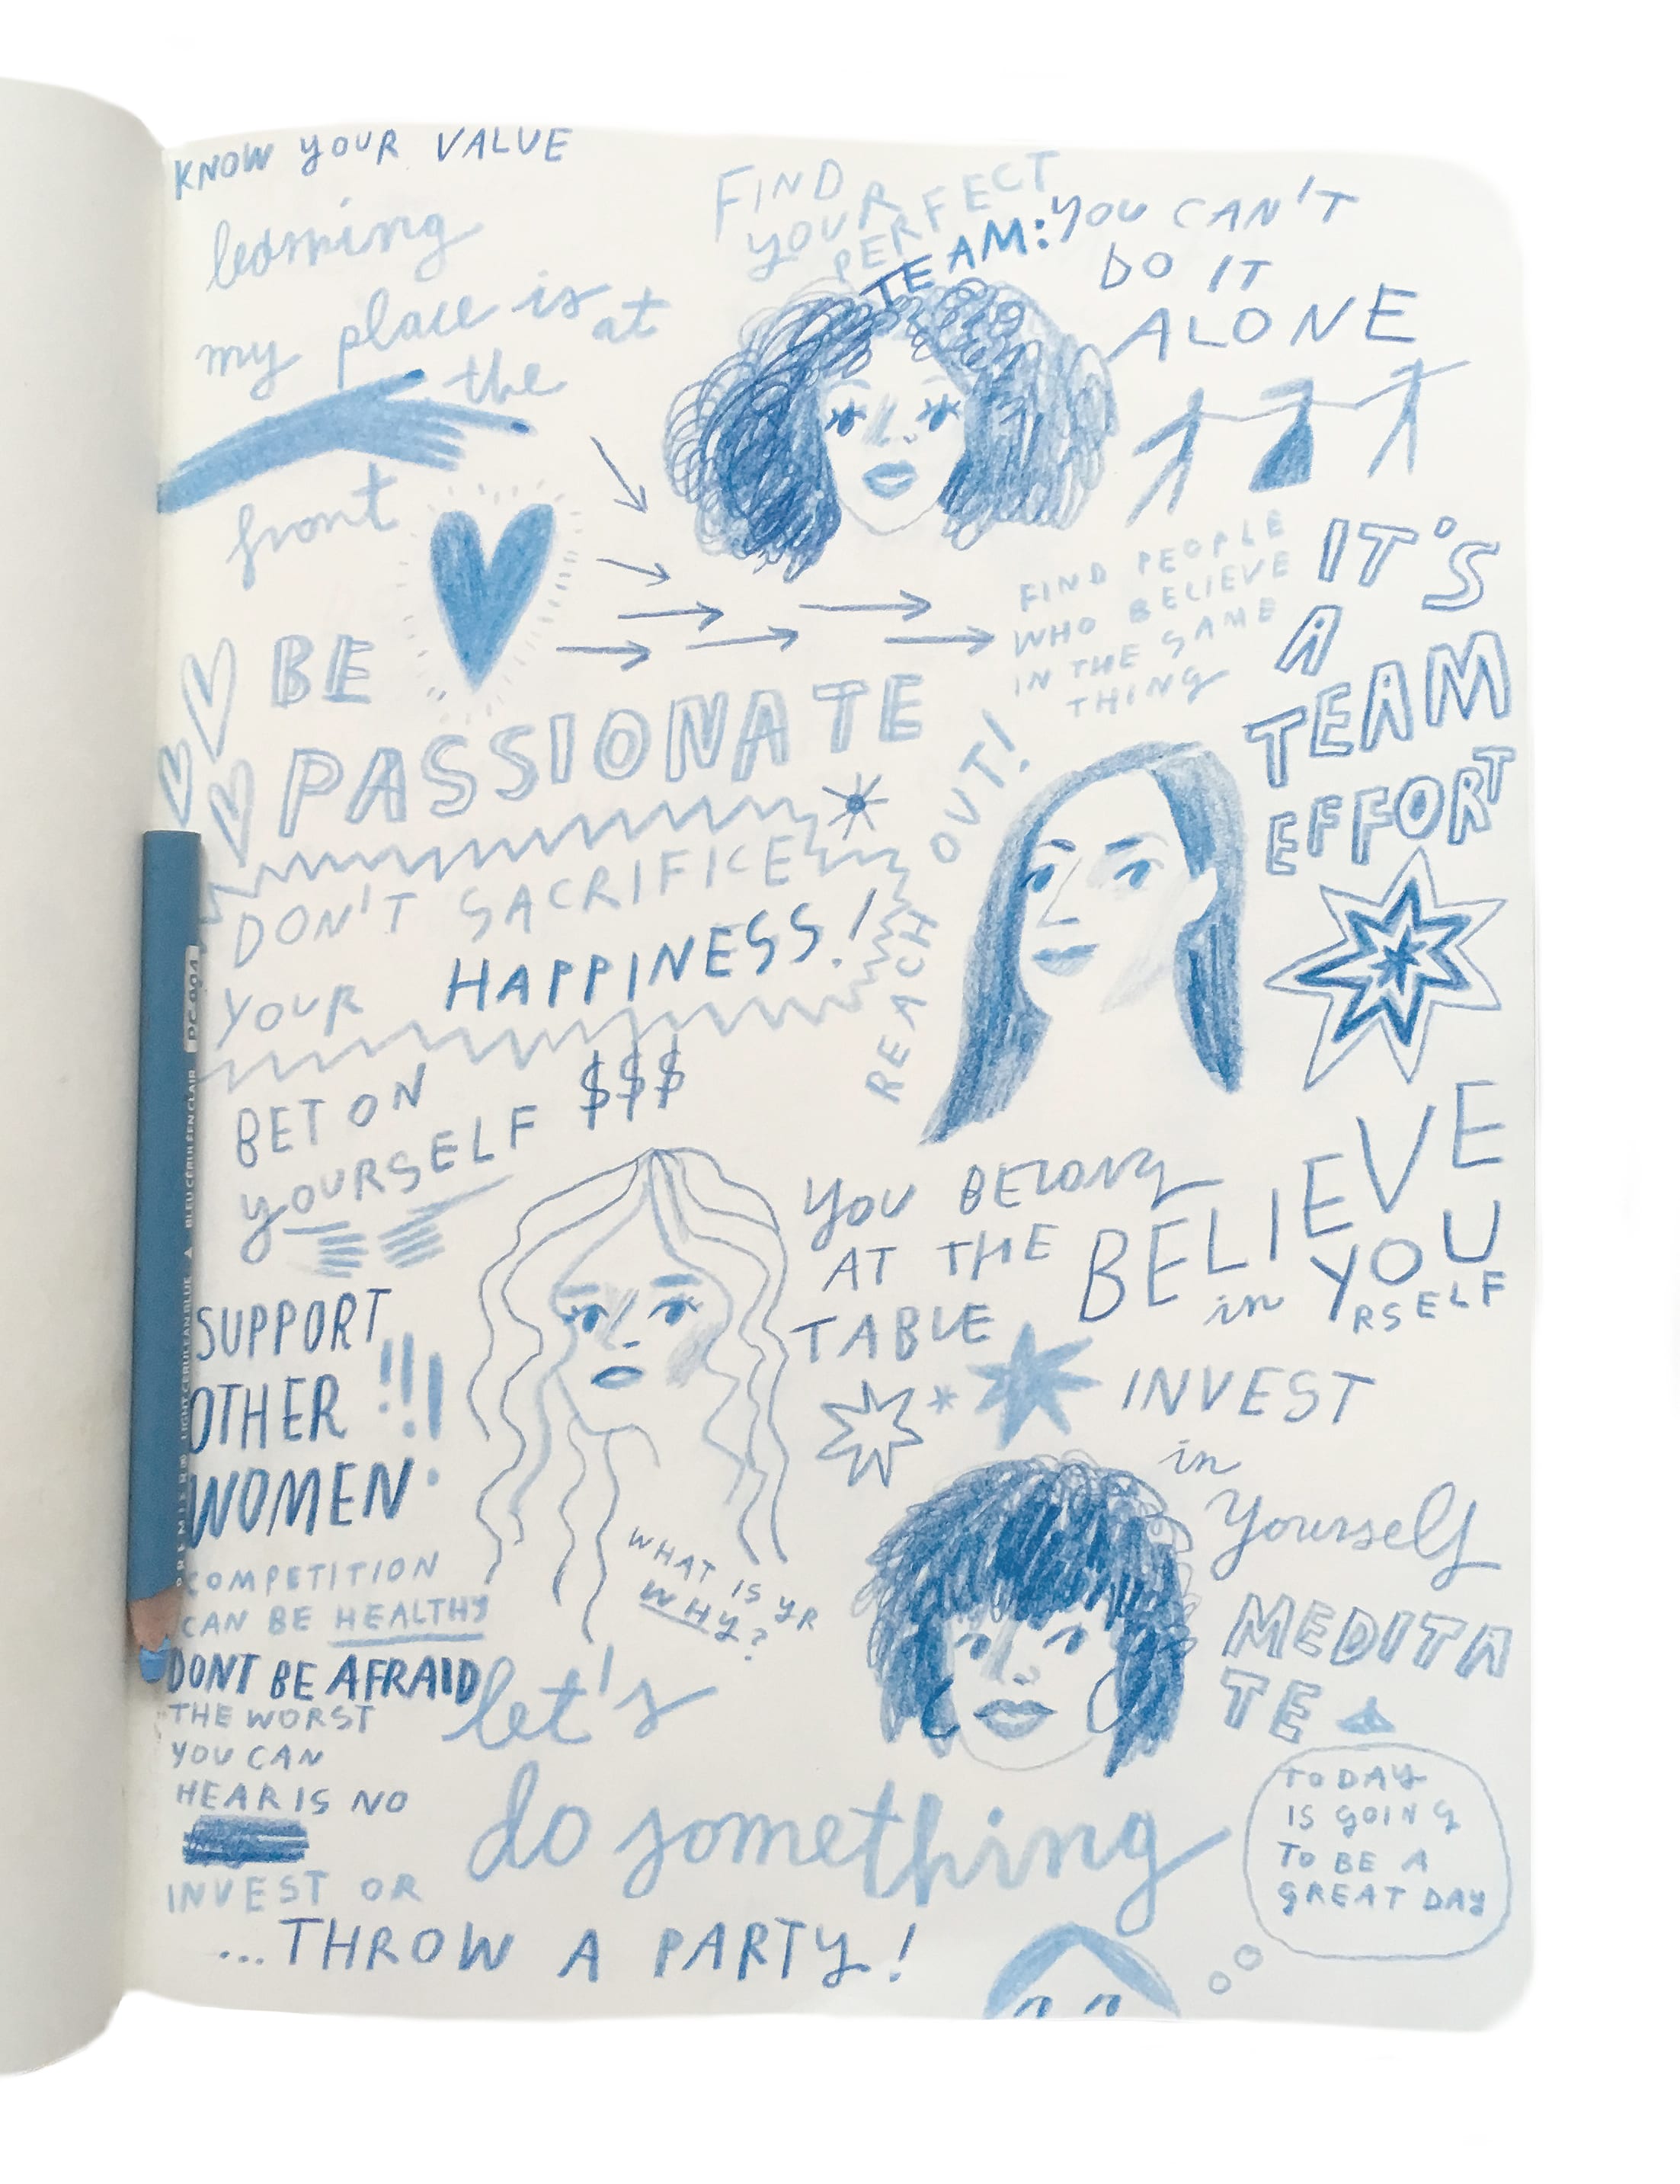 KNOW YOUR VALUE
learning
my place is at
the
front
FIND
YOUR
PERFECT
TEAM: YOU CAN'T
DO IT
ALONE
FIND PEOPLE
WHO BELIEVE
IN THE SAME
THING
IT'S
A
TEAM
EFFORT
BE
PASSIONATE
DON'T SACRIFICE
YOUR HAPPINESS!
REACH OUT!
BET ON
YOURSELF $$$
YOU BELONG
AT THE
TABLE
BELIEVE
in YOU
RSELF
SUPPORT
OTHER !!!
WOMEN
INVEST
in
Yourself
COMPETITION
CAN BE HEALTHY
WHAT IS YR
WHY?
MEDITA
TE
DONT BE AFRAID
THE WORST
YOU CAN
HEAR IS NO
let's
do something
INVEST OR
...THROW A PARTY!
TODAY
IS GOING
TO BE A
GREAT DAY
PREMIER® LIGHT CERULEAN BLUE ▲ BLEU CÉRULÉEN CLAIR PC 904